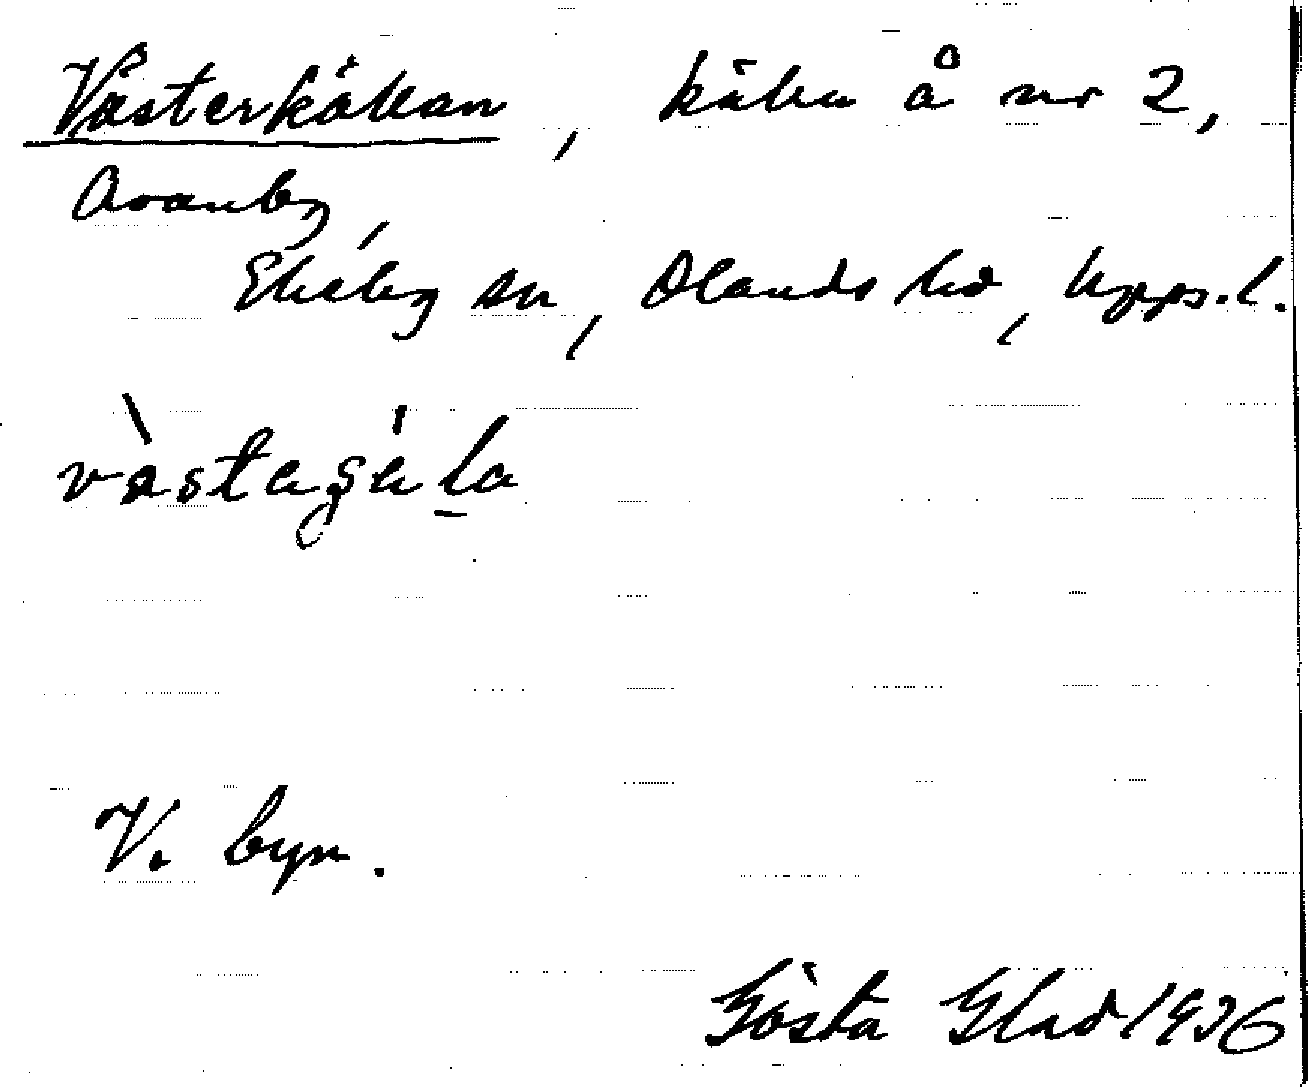 Västerkällan, källa å nr 2,
Avanby,
Ekeby sn, Olands hd, Upps.l.
V. byn.
Gösta Glad 1936